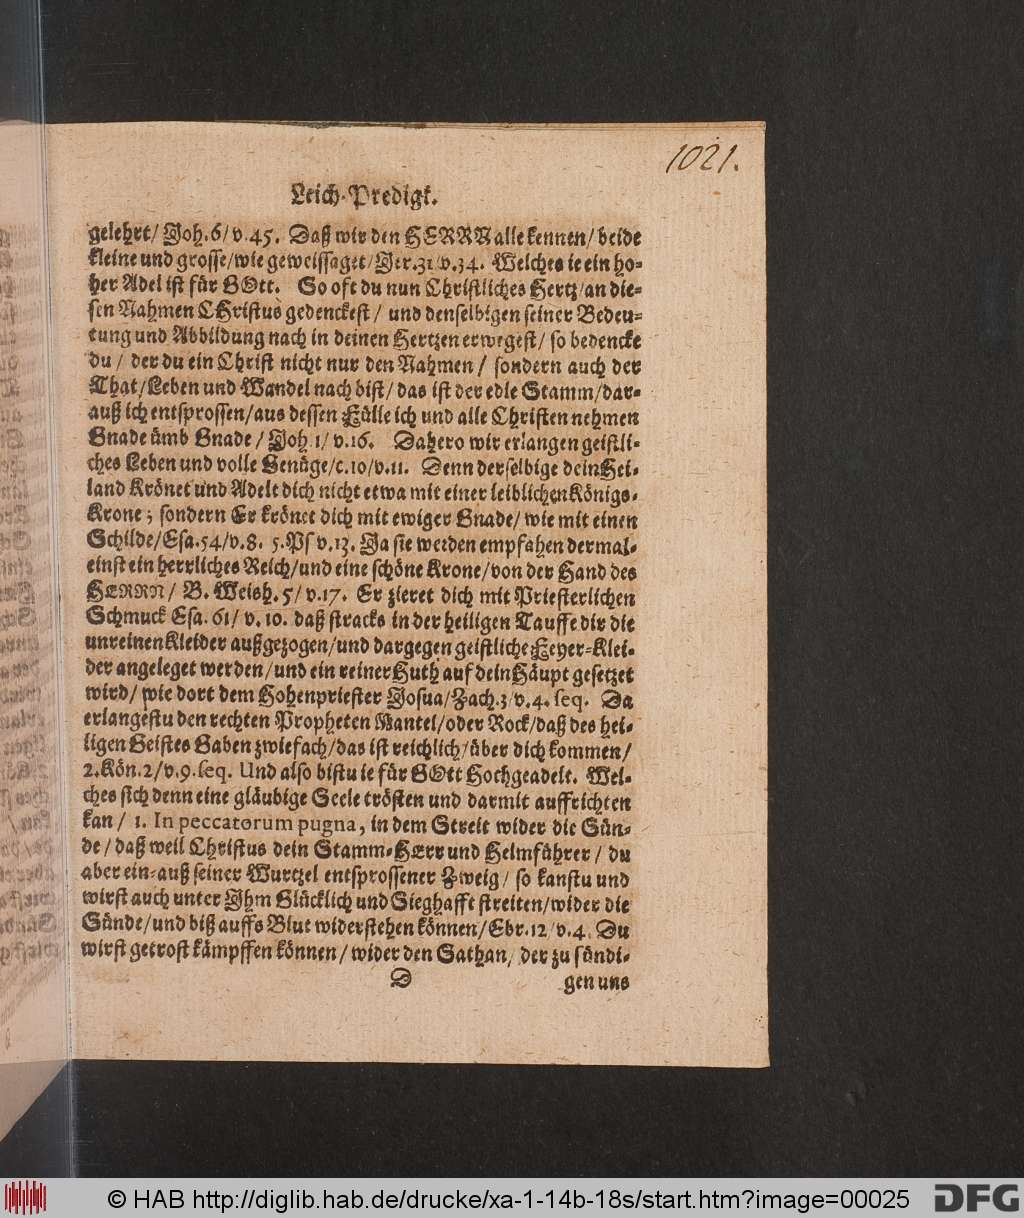 1021.
Leich-Predigt.
gelehrt/ Joh. 6/ v. 45. Daß wir den HERRN alle kennen/ beide
kleine und grosse/ wie geweissaget/ Jer. 31/ v. 34. Welches ie ein ho-
her Adel ist für GOtt. So oft du nun Christliches Hertz/ an die-
sen Nahmen CHristus gedenckest/ und denselbigen seiner Bedeu-
tung und Abbildung nach in deinen Hertzen erwegest/ so bedencke
du/ der du ein Christ nicht nur den Nahmen/ sondern auch der
That/ Leben und Wandel nach bist/ das ist der edle Stamm/ dar-
auß ich entsprossen/ aus dessen Fülle ich und alle Christen nehmen
Gnade ümb Gnade/ Joh. 1/ v. 16. Dahero wir erlangen geistli-
ches Leben und volle Genüge/ c. 10/ v. 11. Denn derselbige dein Hei-
land Krönet und Adelt dich nicht etwa mit einer leiblichen Königs-
Krone; sondern Er krönet dich mit ewiger Gnade/ wie mit einen
Schilde/ Esa. 54/ v. 8. 5. Ps v. 13. Ja sie werden empfahen dermal-
einst ein herrliches Reich/ und eine schöne Krone/ von der Hand des
HERRN/ B. Weish. 5/ v. 17. Er zieret dich mit Priesterlichen
Schmuck Esa. 61/ v. 10. daß stracks in der heiligen Tauffe dir die
unreinen Kleider außgezogen/ und dargegen geistliche Feyer-Klei-
der angeleget werden/ und ein reiner Huth auf dein Häupt gesetzet
wird/ wie dort dem Hohenpriester Josua/ Zach. 3/ v. 4. seq. Da
erlangestu den rechten Propheten Mantel/ oder Rock/ daß des hei-
ligen Geistes Gaben zwiefach/ das ist reichlich/ über dich kommen/
2. Kön. 2/ v. 9. seq. Und also bistu ie für GOtt Hochgeadelt. Wel-
ches sich denn eine gläubige Seele trösten und darmit auffrichten
kan/ 1. In peccatorum pugna, in dem Streit wider die Sün-
de/ daß weil Christus dein Stamm-HErr und Helmführer/ du
aber ein-auß seiner Wurtzel entsprossener Zweig/ so kanstu und
wirst auch unter Ihm Glücklich und Sieghafft streiten/ wider die
Sünde/ und biß auffs Blut widerstehen können/ Ebr. 12/ v. 4. Du
wirst getrost kämpffen können/ wider den Sathan/ der zu sündi-
D gen uns
© HAB http://diglib.hab.de/drucke/xa-1-14b-18s/start.htm?image=00025 DFG